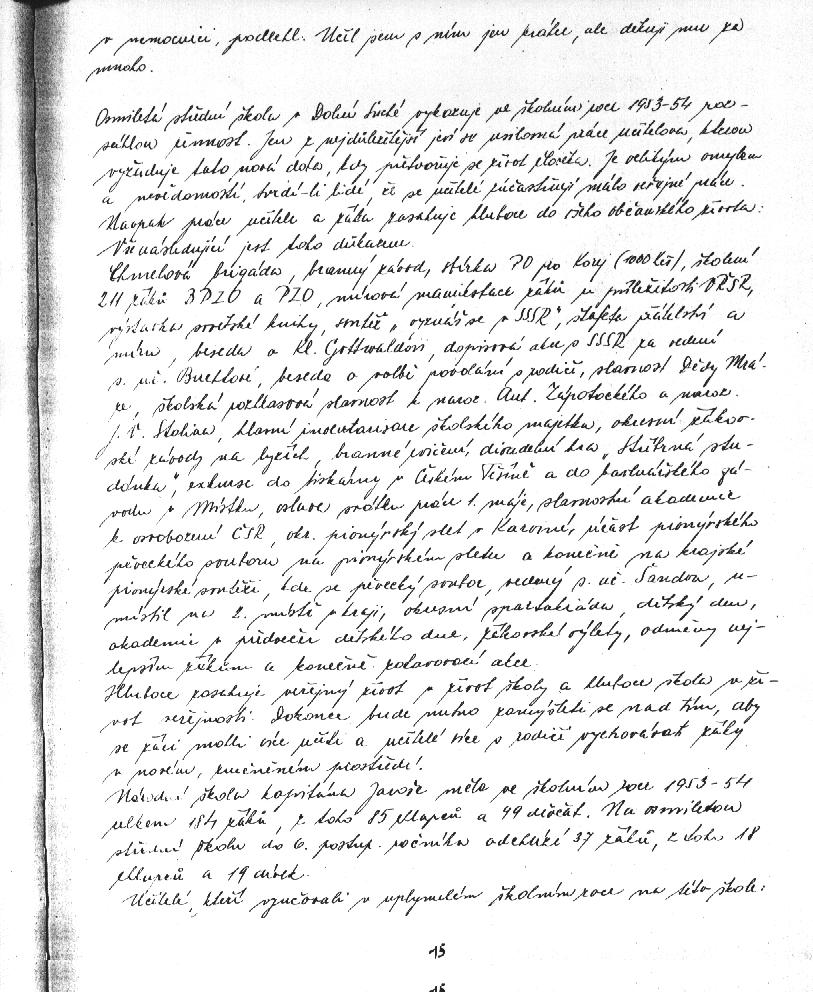 v nemocnici, podlehl. Učil jsem s ním jen krátce, ale děkuji mu za
mnoho.
Osmiletá střední škola v Dolní Suché vykazuje ve školním roce 1953-54 roz-
sáhlou činnost. Jen z nejdůležitější jest usilovná práce učitelova, kterou
vyžaduje tato nová doba, kdy přetvořuje se život člověka. Je velikým omylem
a nevědomostí, tvrdí-li lidé, že se učitelé zúčastňují málo veřejné práce.
Naopak práce učitele a žáků zasahuje hluboce do všeho občanského života:
Vše následující jest toho důkazem.
Chmelová brigáda, branný závod, sbírka PO pro Korej (1000 kčs), školení
211 žáků BPZO a PZO, mírová manifestace žáků při příležitosti VŘSR,
výstavka sovětské knihy, soutěž „vyznáš se v SSSR", štafeta přátelství a
míru, beseda o Kl. Gottwaldovi, dopisová akce s SSSR za vedení
s. uč. Buchtové, beseda o volbě povolání s rodiči, slavnost Dědy Mrá-
ze, školská rozhlasová slavnost k naroz. Ant. Zápotockého a naroz.
J. V. Stalina, hlavní inventarisace školského majetku, okresní žákov-
ské závody na lyžích, branné cvičení, divadelní hra „Stříbrná stu-
dánka", exkurse do tiskárny v Českém Těšíně a do závodu
v Místku, oslava svátku práce 1. máje, slavnostní akademie
k osvobození ČSR, okr. pionýrský slet v Karviné, účast pionýrského
pěveckého souboru na pionýrském sletu a konečně na krajské
pionýrské soutěži, kde se pěvecký soubor, vedený s. uč. Šandou, u-
místil na 2. místě v kraji, okresní spartakiáda, dětský den,
akademie v předvečer dětského dne, žákovské výlety, odměny nej-
lepším žákům a konečně kolaudační akce.
Hluboce zasahuje veřejný život v život školy a hluboce škola v ži-
vot veřejnosti. Dokonce bude nutno zamysleti se nad tím, aby
se žáci mohli více učiti a učitelé více s rodiči vychovávat žáky
v novém, změněném prostředí.
Národní škola kapitána Jaroše měla ve školním roce 1953-54
celkem 184 žáků, z toho 85 chlapců a 99 děvčat. Na osmiletou
střední školu do 6. postup. ročníku odchází 37 žáků, z toho 18
chlapců a 19 dívek.
Učitelé, kteří vyučovali v uplynulém školním roce na této škole:
15